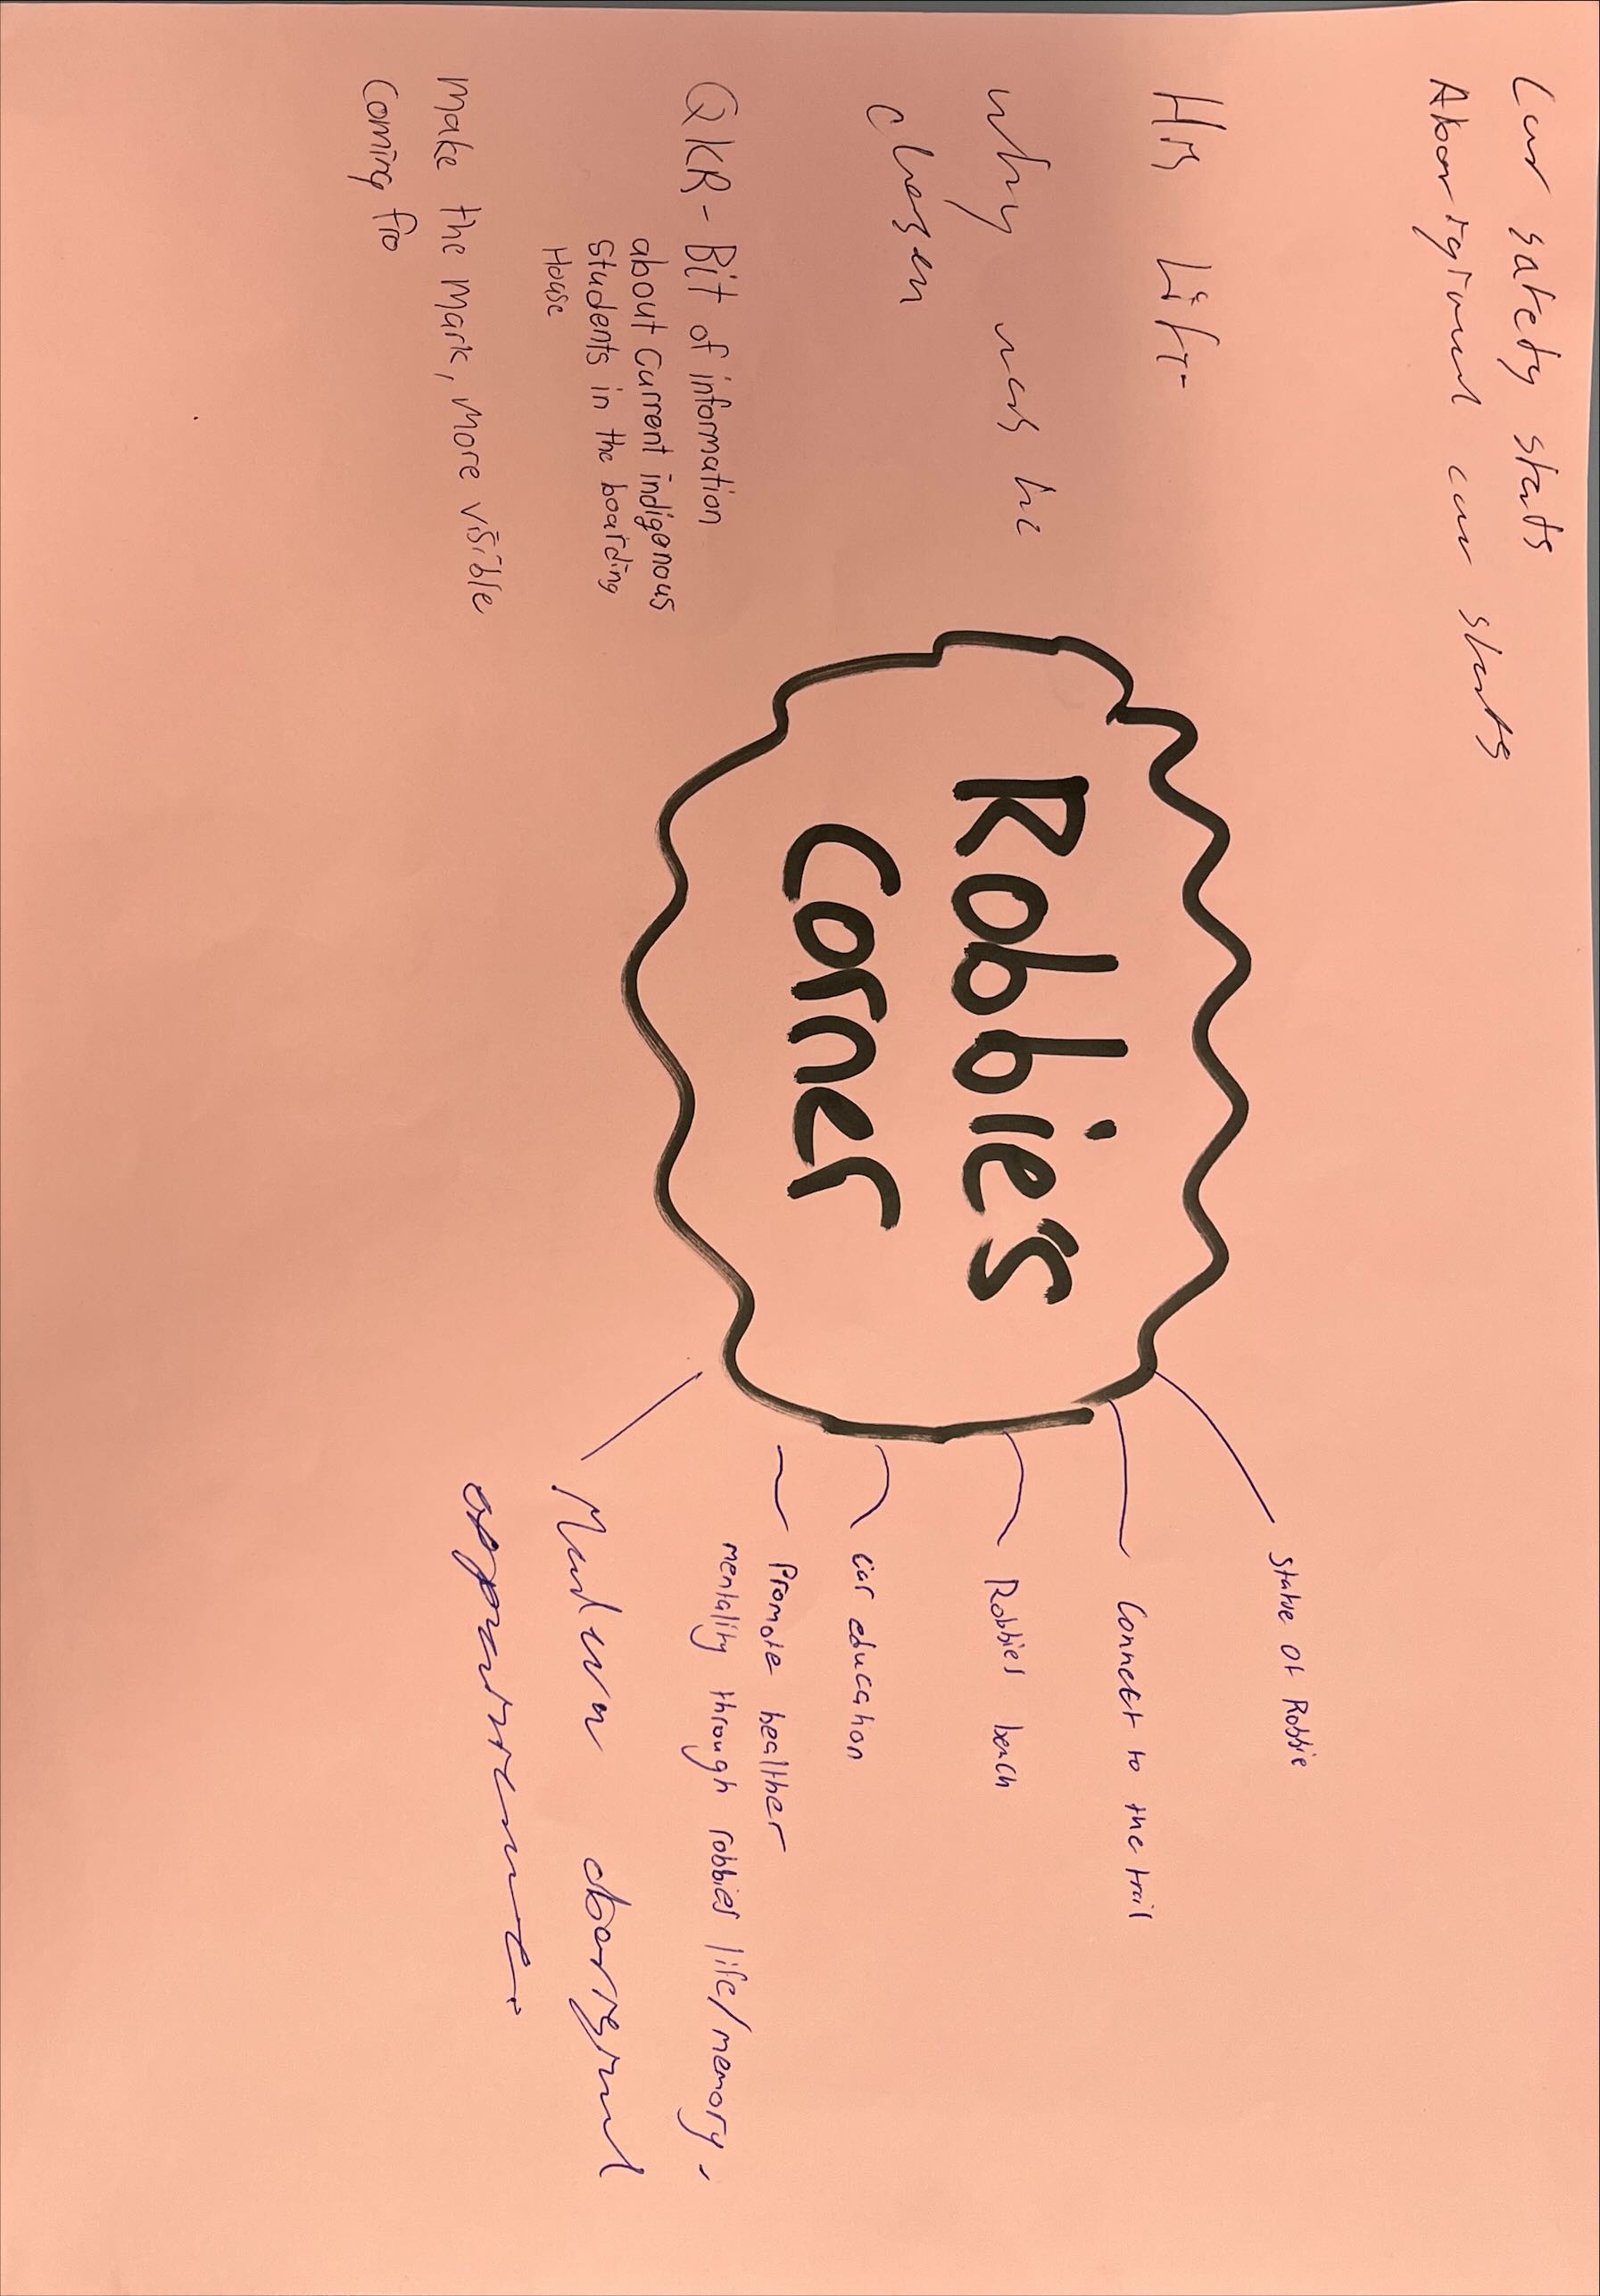 Car safety stats
Aboriginal car stats
His Life
why was he
chosen
QKR - Bit of information
about current indigenous
Students in the boarding
House
Make the Mark, More visible
Coming fro
Robbie's
Corner
Statue of Robbie
Connect to the trail
Robbies bench
Car education
Promote healther
mentality through robbies life/memory,
Modern aboriginal
experience.